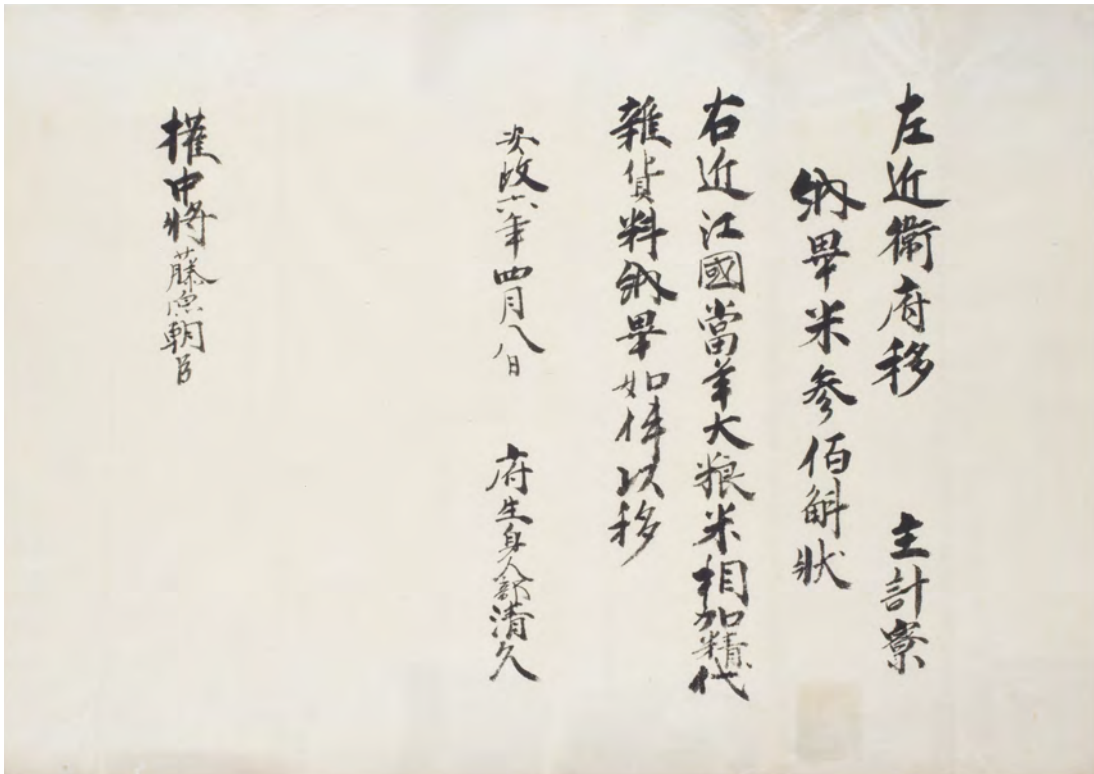 左近衛府移 主計寮
納畢米参佰斛状
右近江國當年大粮米相加精代
雑貨料納畢如件以移
安政六年四月八日 府生身人部清久
権中将藤原朝臣